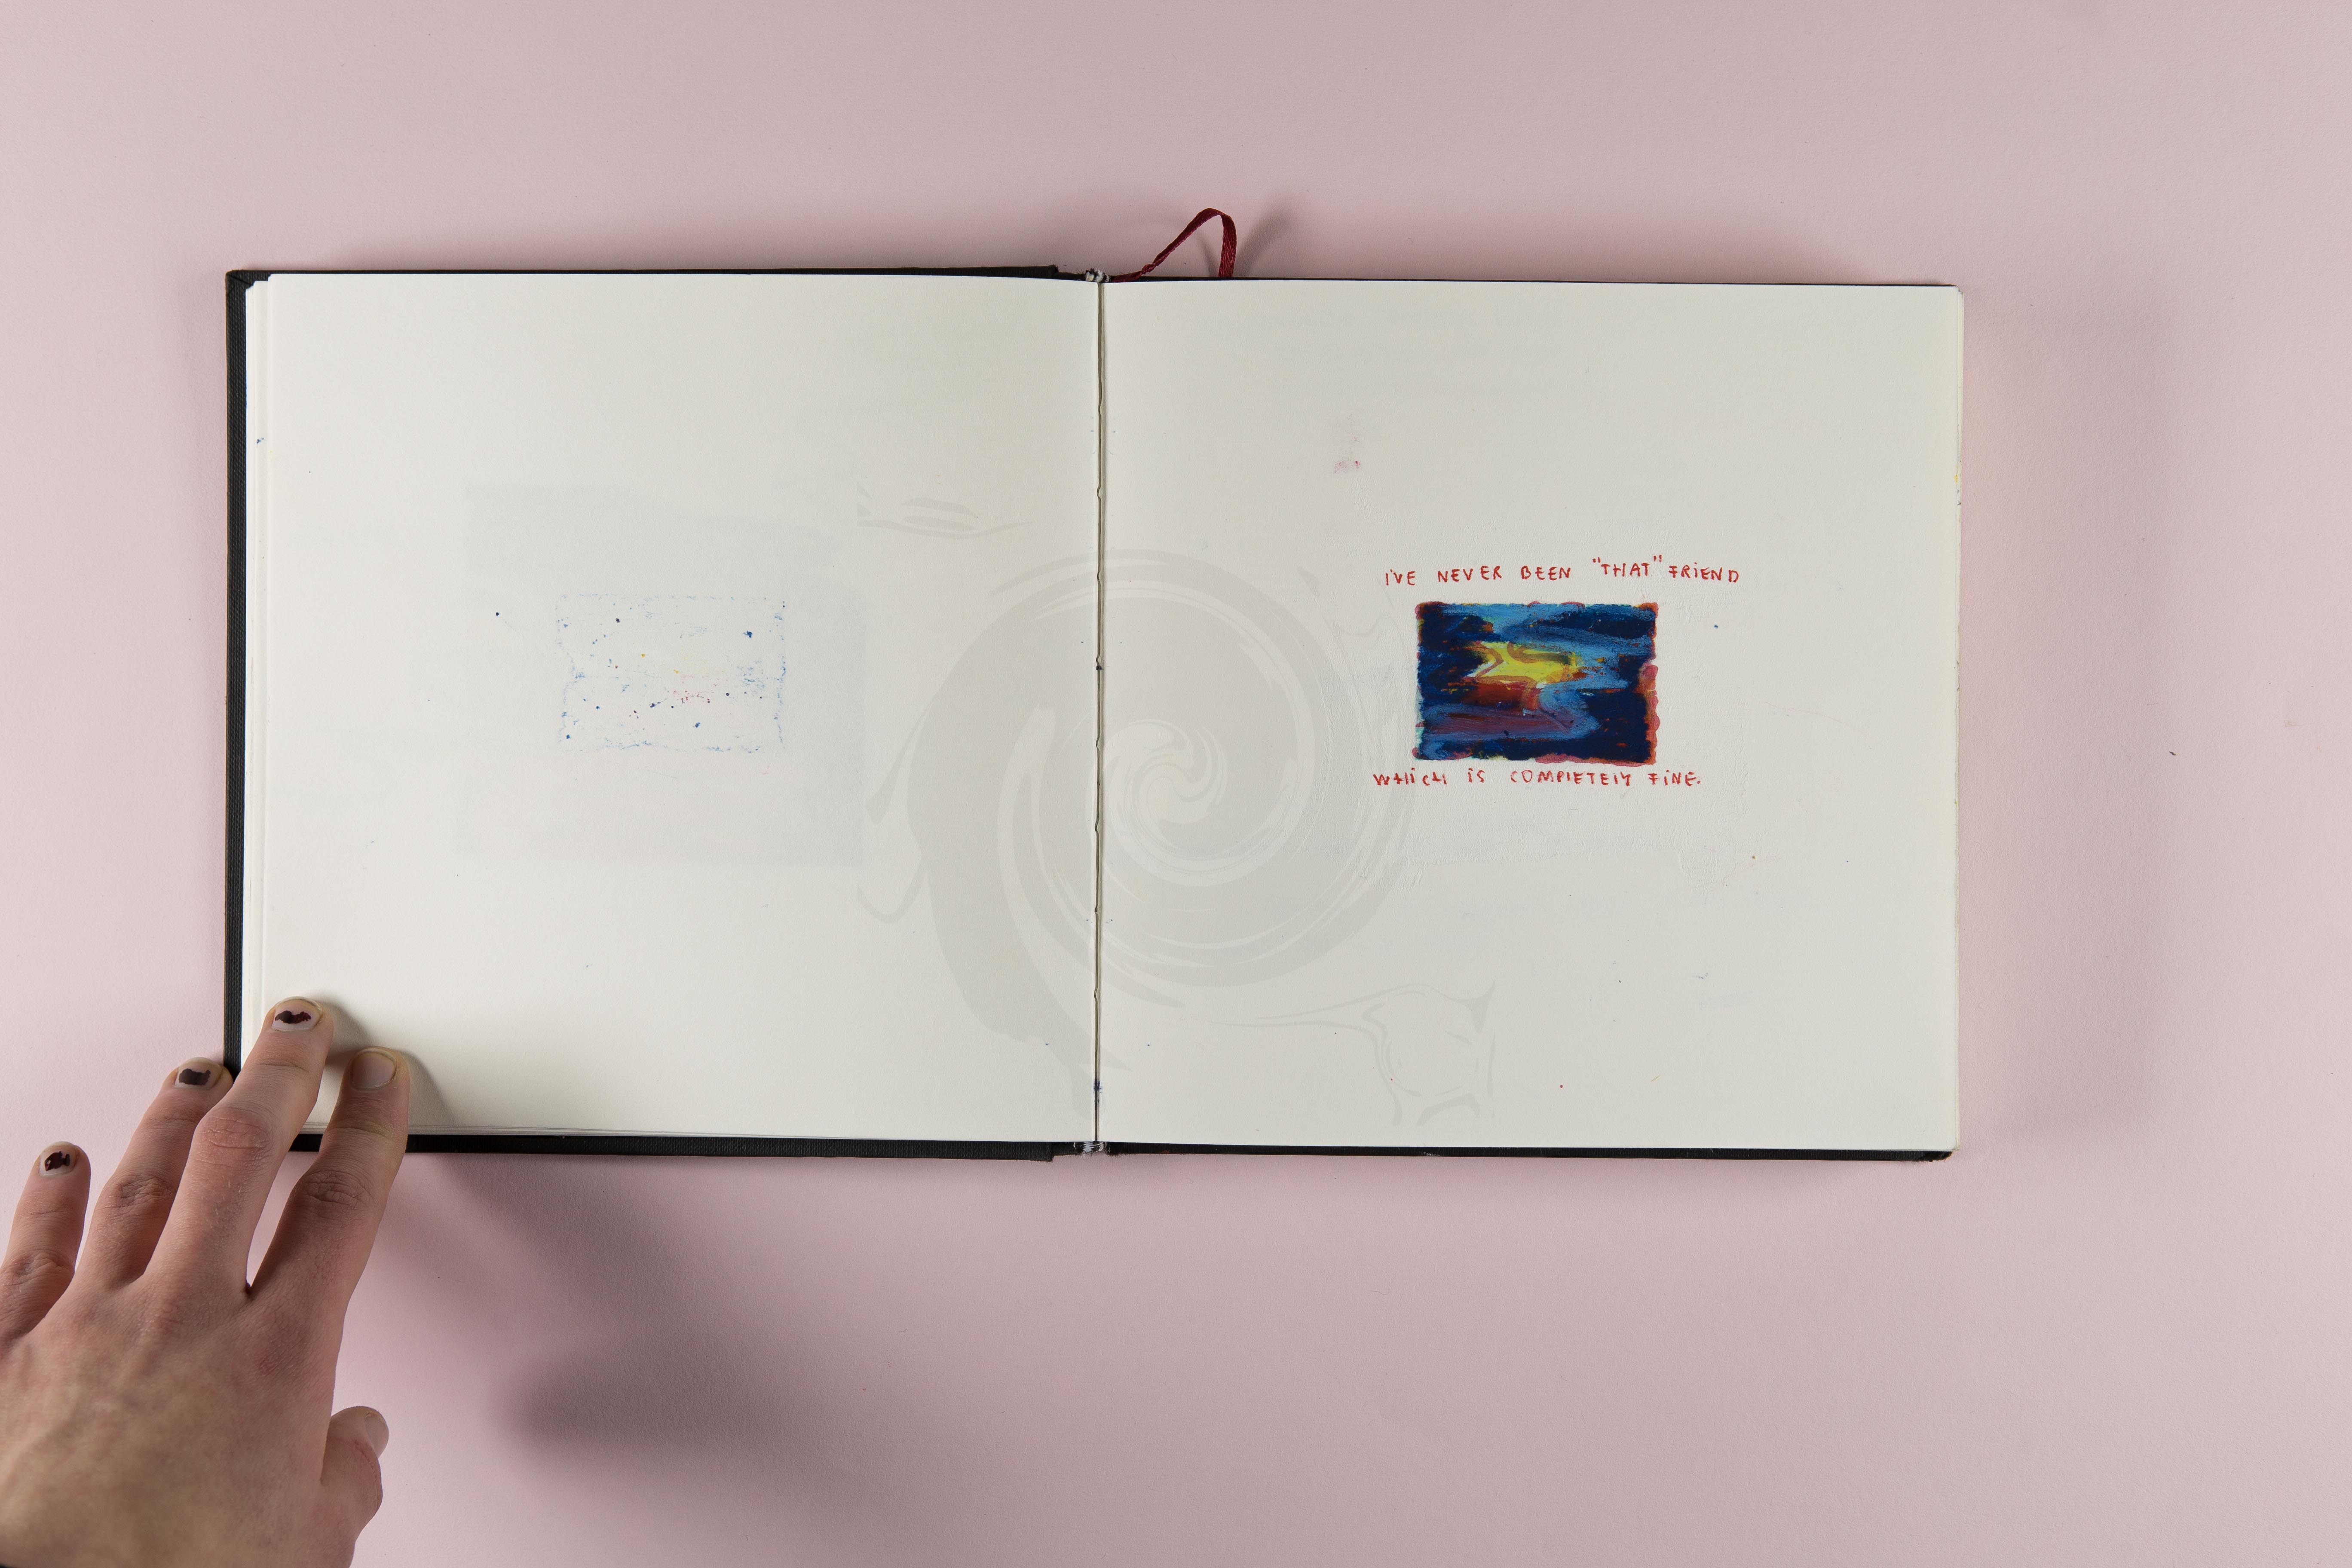 I'VE NEVER BEEN "THAT" FRIEND
WHICH IS COMPLETELY FINE.